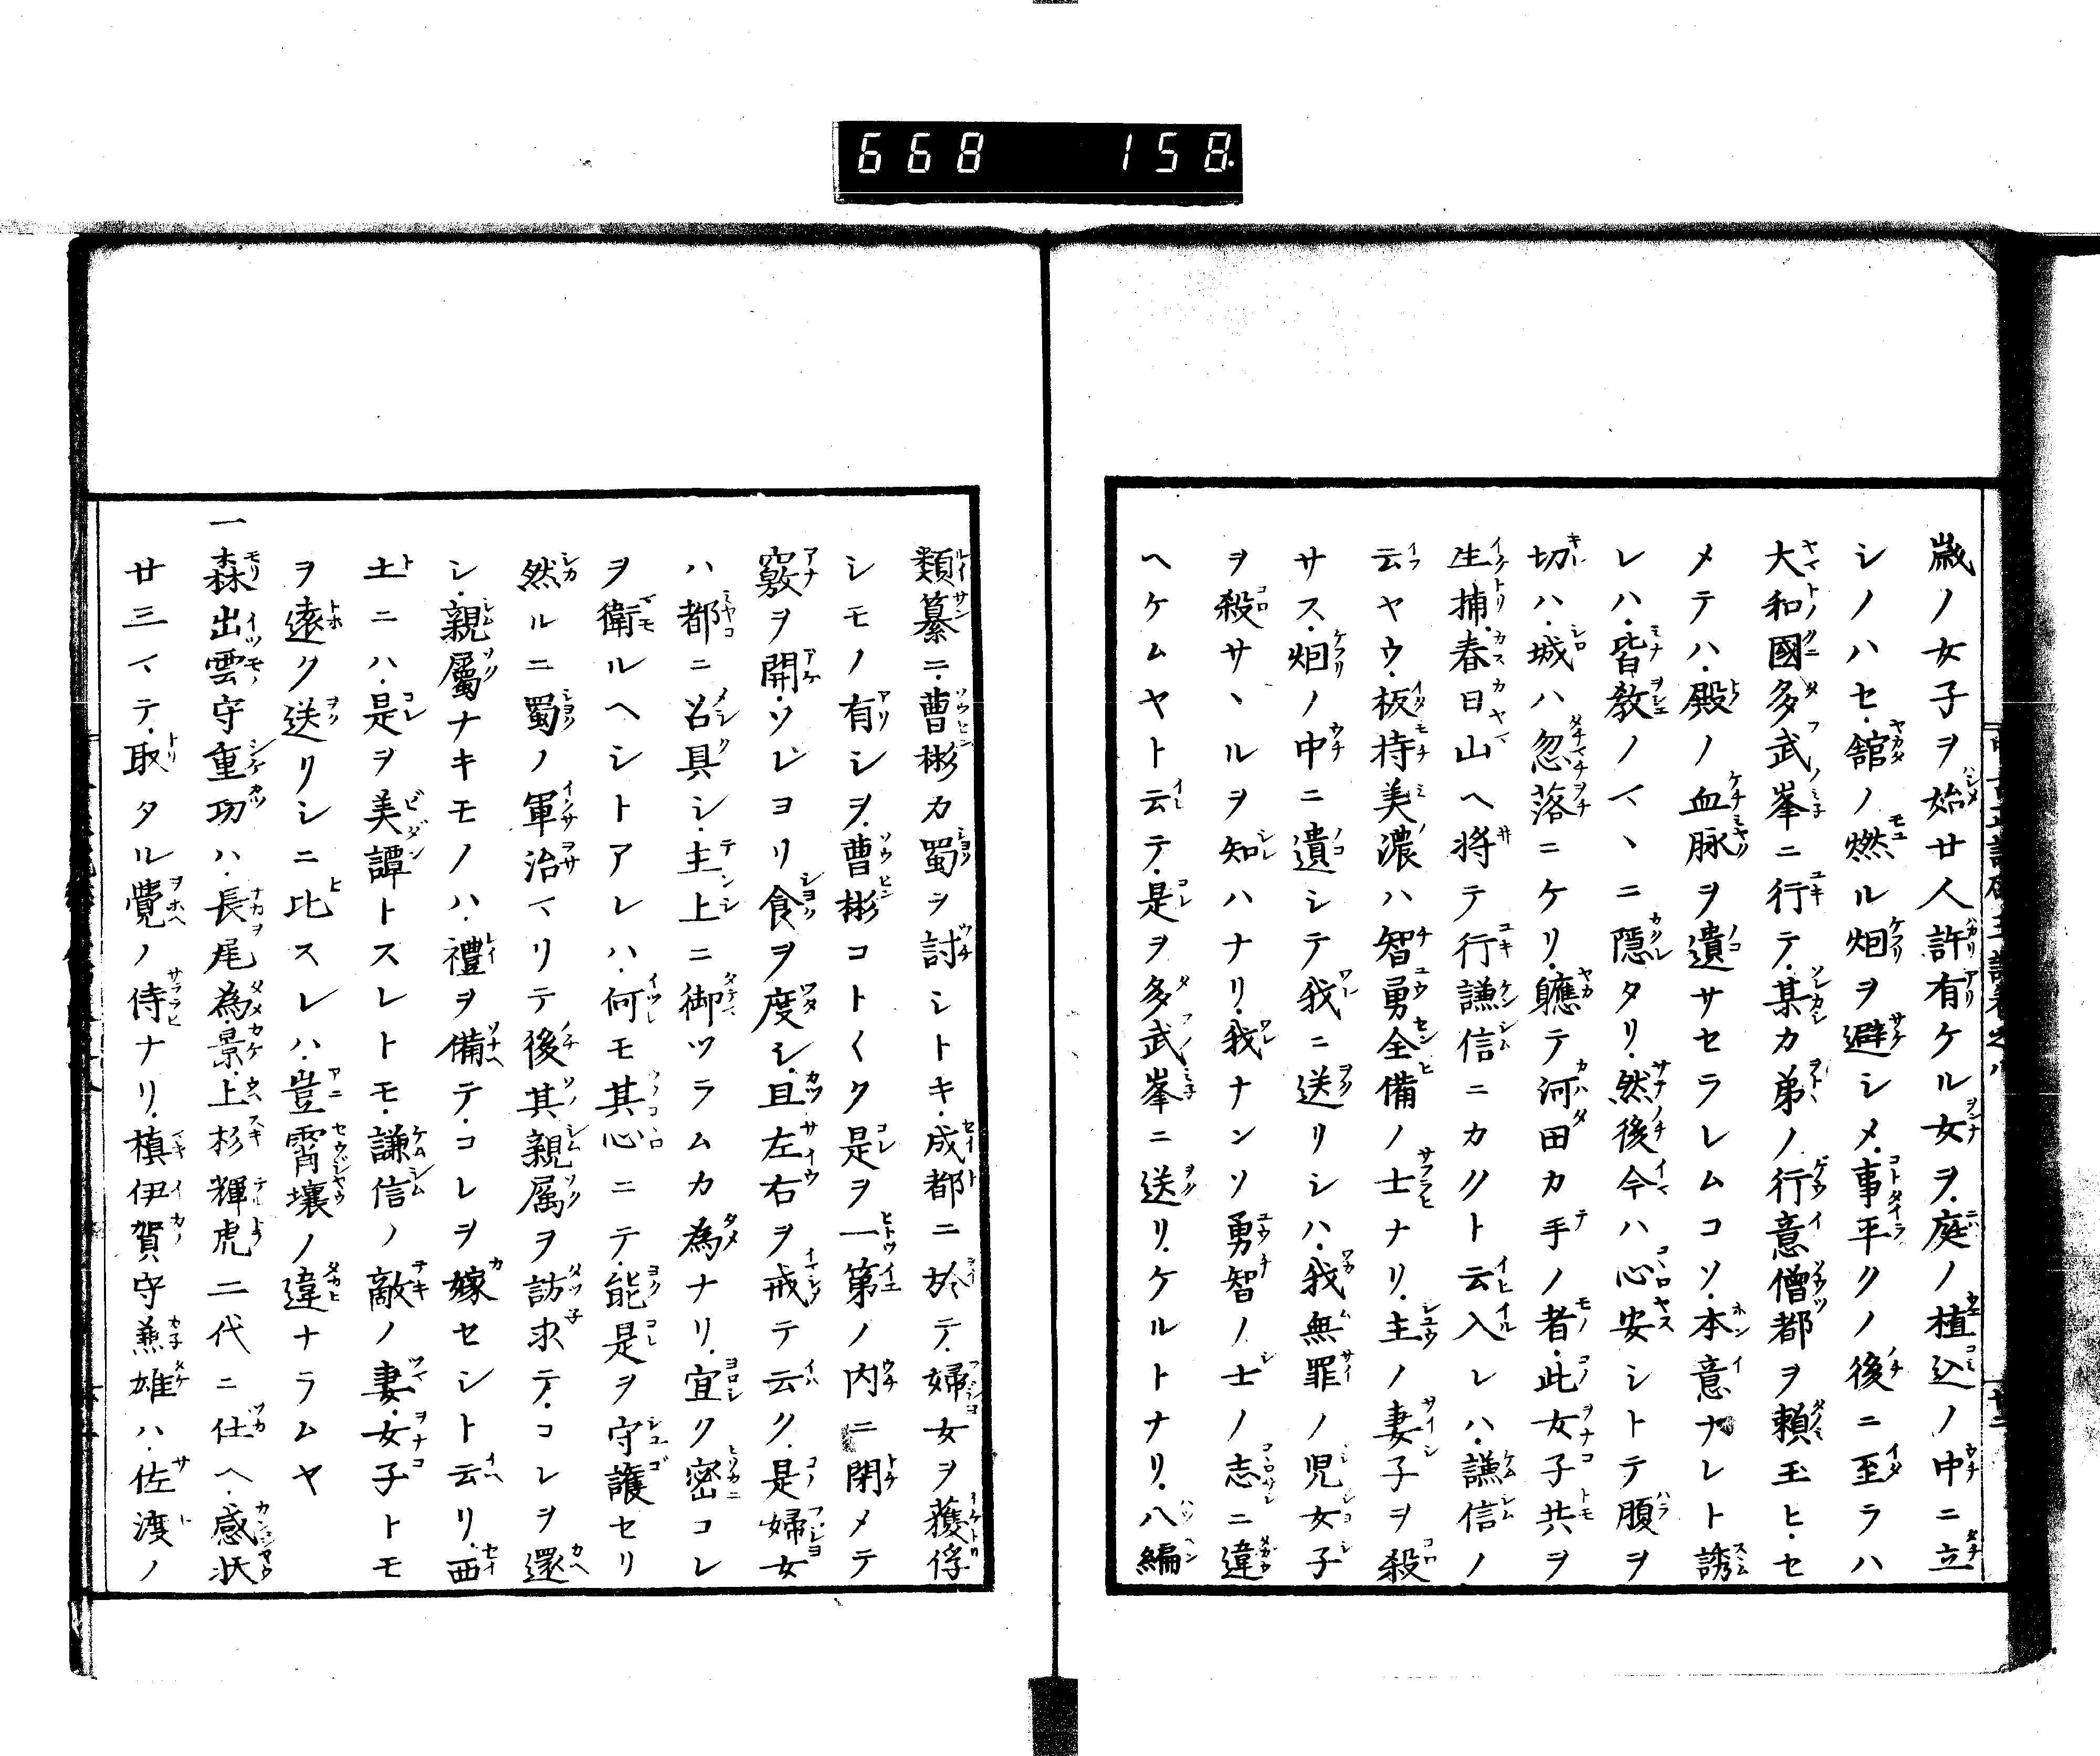 668 158
歳ノ女子ヲ始廿人許有ケル女ヲ庭ノ植込ノ中ニ立
シノハセ舘ノ燃ル烟ヲ避シメ事平クノ後ニ至ラハ
大和國多武峯ニ行テ某カ弟ノ行意僧都ヲ頼玉ヒセ
メテハ殿ノ血脉ヲ遺サセラレムコソ本意ナレト誘
レハ皆教ノマヽニ隠タリ然後今ハ心安シトテ腹ヲ
切ハ城ハ忽落ニケリ軈テ河田カ手ノ者此女子共ヲ
生捕春日山ヘ将テ行謙信ニカクト云入レハ謙信ノ
云ヤウ板持美濃ハ智勇全備ノ士ナリ主ノ妻子ヲ殺
サス烟ノ中ニ遺シテ我ニ送リシハ我無罪ノ児女子
ヲ殺サヽルヲ知ハナリ我ナンソ勇智ノ士ノ志ニ違
ヘケムヤト云テ是ヲ多武峯ニ送リケルトナリ八編
類纂ニ曹彬カ蜀ヲ討シトキ成都ニ於テ婦女ヲ獲俘
シモノ有シヲ曹彬コト〱ク是ヲ一第ノ内ニ閉メテ
竅ヲ開ソレヨリ食ヲ度シ且左右ヲ戒テ云ク是婦女
ハ都ニ召具シ主上ニ御ツラムカ為ナリ宜ク密コレ
ヲ衛ルヘシトアレハ何モ其心ニテ能是ヲ守護セリ
然ルニ蜀ノ軍治マリテ後其親属ヲ訪求テコレヲ還
シ親屬ナキモノハ禮ヲ備テコレヲ嫁セシト云リ西
土ニハ是ヲ美譚トスレトモ謙信ノ敵ノ妻女子トモ
ヲ遠ク送リシニ比スレハ豈霄壤ノ違ナラムヤ
一森出雲守重功ハ長尾為景上杉輝虎二代ニ仕ヘ感状
廿三マテ取タル覺ノ侍ナリ槙伊賀守兼雄ハ佐渡ノ